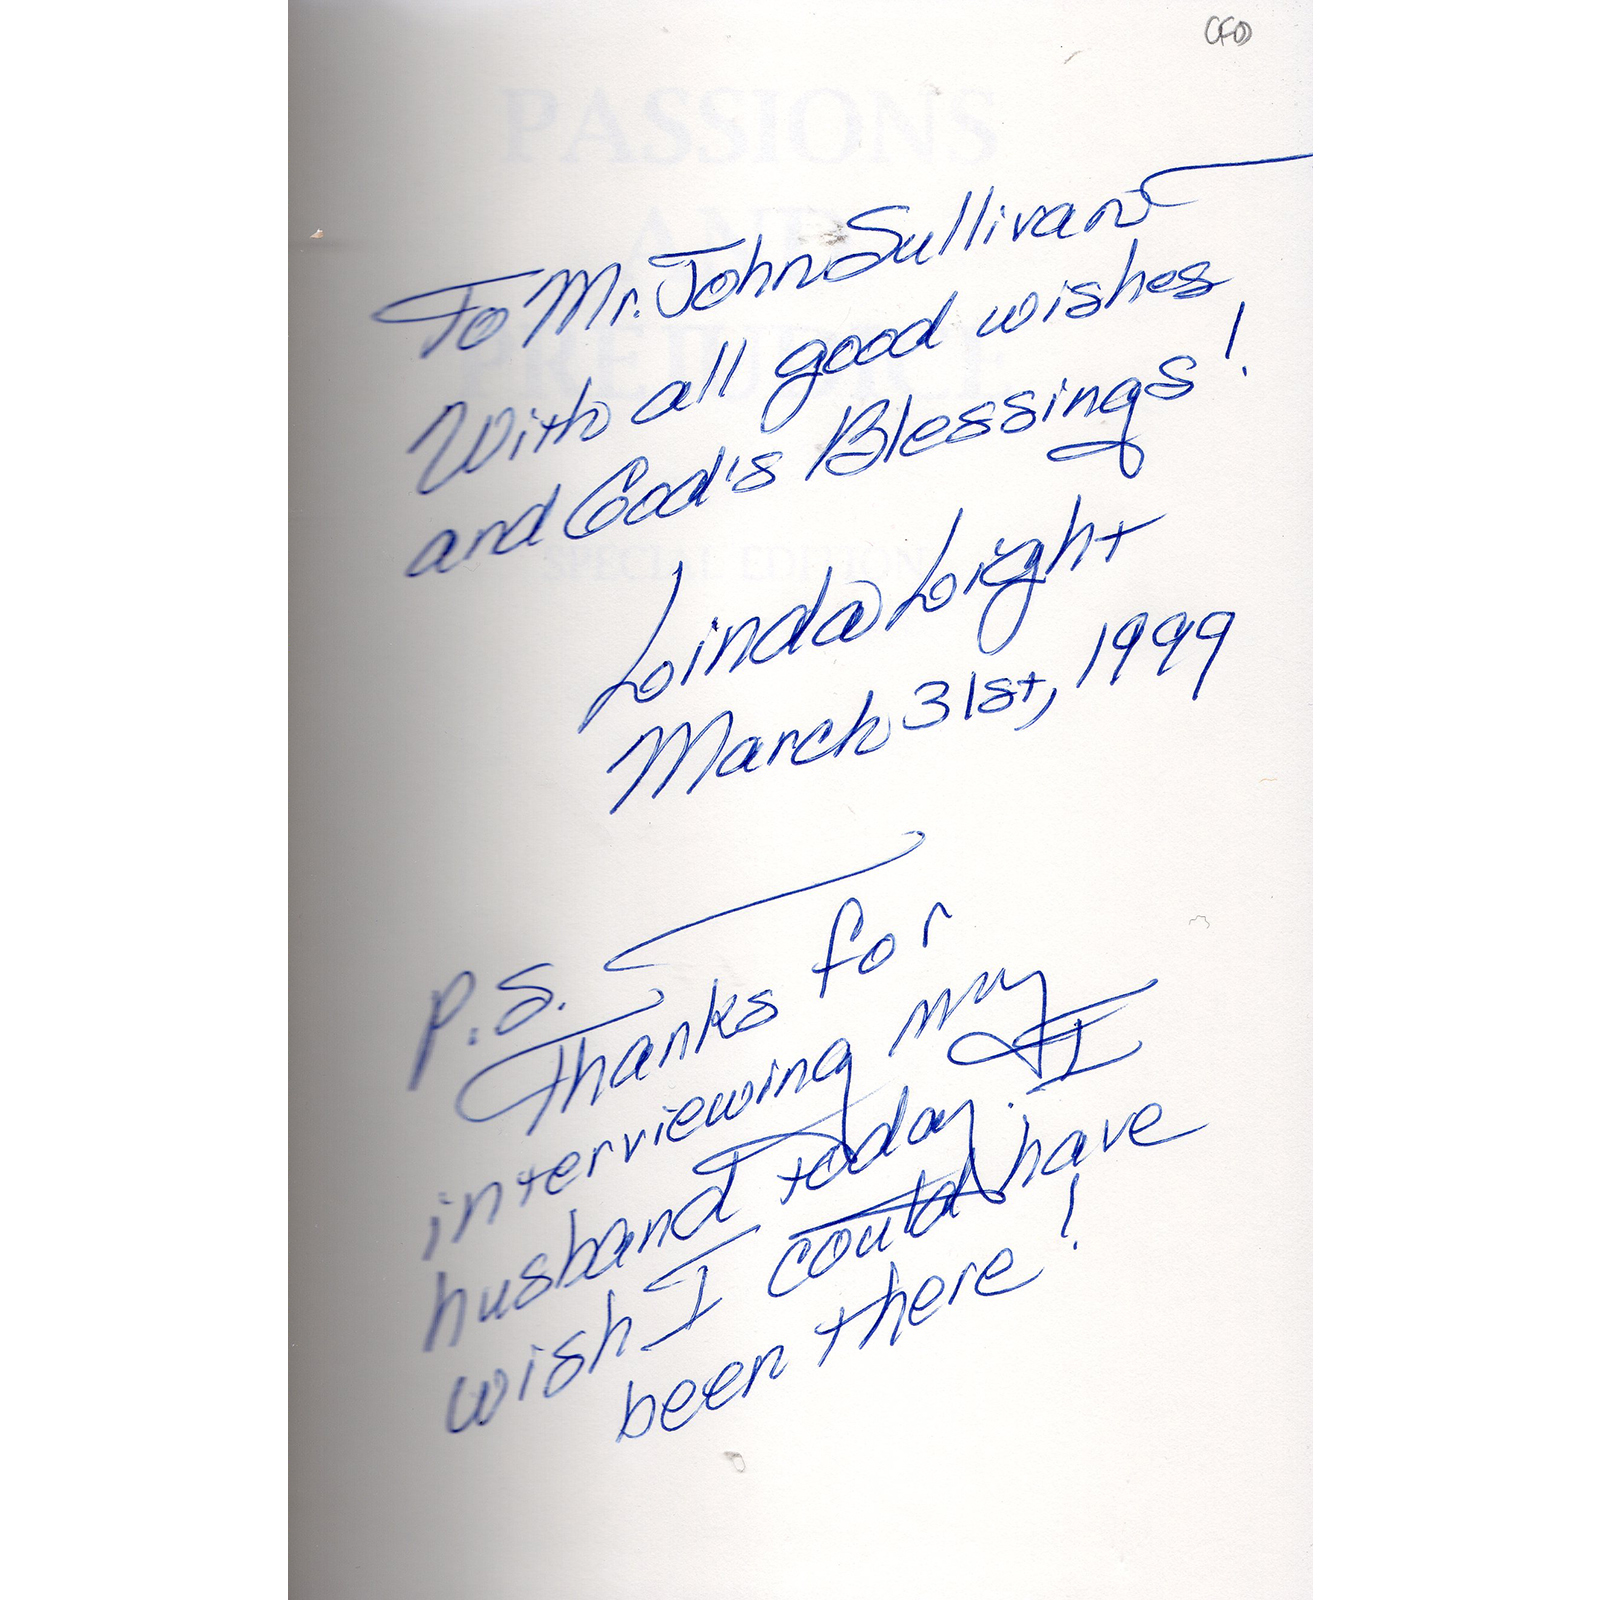 CFO
PASSIONS
AND
PREJUDICE
SPECIAL EDITION
To Mr. John Sullivan
With all good wishes
and God's Blessings!
Linda Light
March 31st, 1999
P.S.
Thanks for
interviewing my
husband today. I
wish I could have
been there!